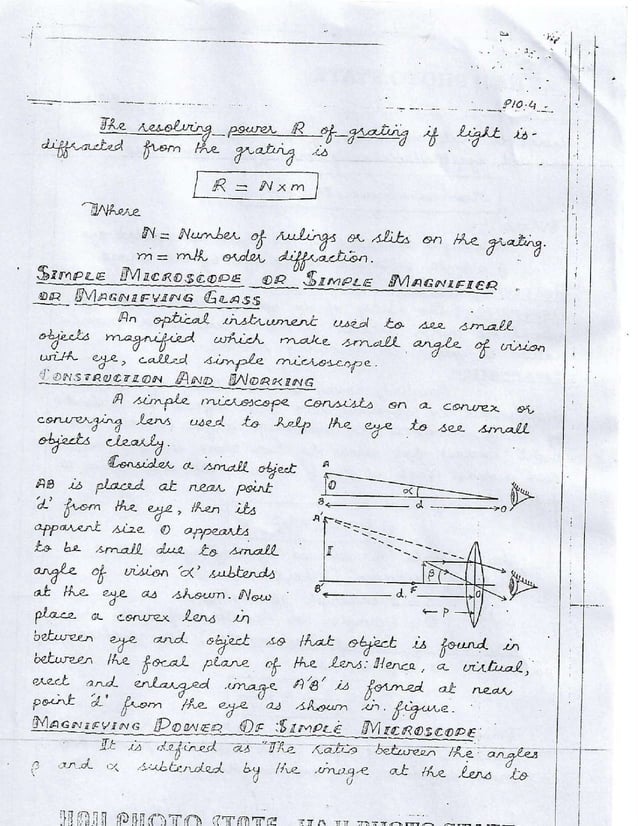 P10.4
The resolving power R of grating if light is-
diffracted from the grating is
R = N×m
Where
N = Number of rulings or slits on the grating.
m = mth order diffraction.
SIMPLE MICROSCOPE OR SIMPLE MAGNIFIER
OR MAGNIFYING GLASS
An optical instrument used to see small
objects magnified which make small angle of vision
with eye, called simple microscope.
CONSTRUCTION AND WORKING
A simple microscope consists on a convex or
converging lens used to help the eye to see small
objects clearly.
Consider a small object
AB is placed at near point
'd' from the eye, then its
apparent size O appearts
to be small due to small
angle of vision 'α' subtends
at the eye as shown. Now
place a convex lens in
A
O
α
B
d
O
A'
I
β
B'
d
F
O
P
between eye and object so that object is found in
between the focal plane of the lens. Hence, a virtual,
erect and enlarged image A'B' is formed at near
point 'd' from the eye as shown in figure.
MAGNIFYING POWER OF SIMPLE MICROSCOPE:
It is defined as "The ratio between the angles
β and α subtended by the image at the lens to
HAJI PHOTO STATE HAJI PHOTO STATE